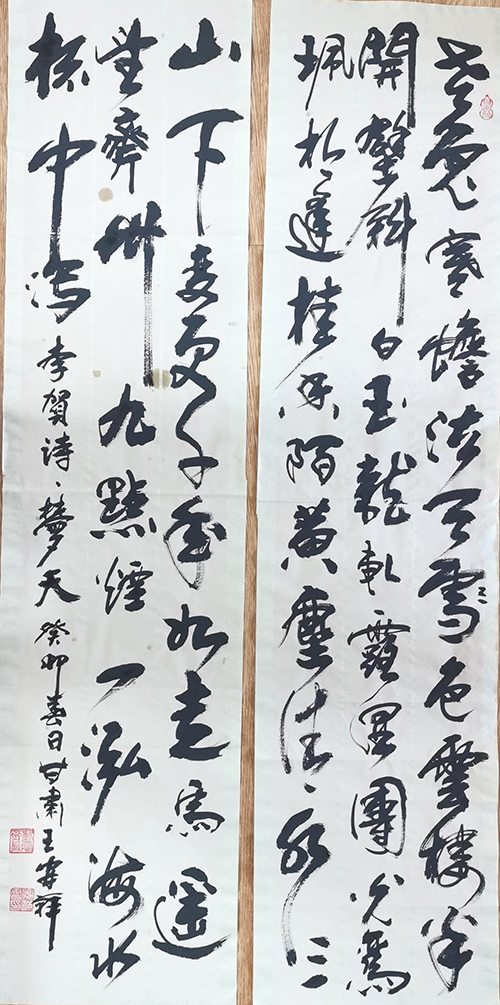 老兔寒蟾泣天雪色雲樓半
開壁斜白玉龍軋露濕團光鸾
珮相逢桂香陌黄塵清水三
山下变更千年如走馬遥
望齊州九點煙一泓海水
杯中瀉 李賀詩、夢天 癸卯春日甘肅王